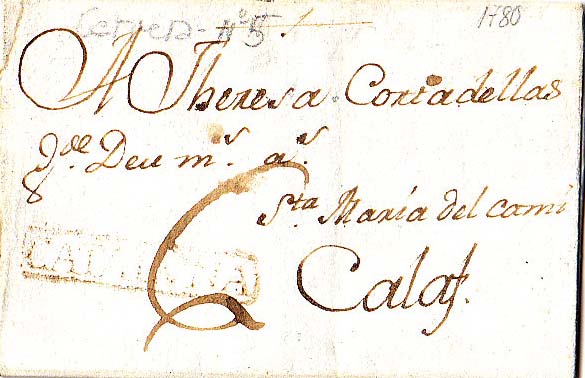 Cervera - Nº 5
1780
A Theresa Cortadellas
q.e Deu m.s a.s
S.ta Maria del cami
Calaf.
CATALUÑA
6